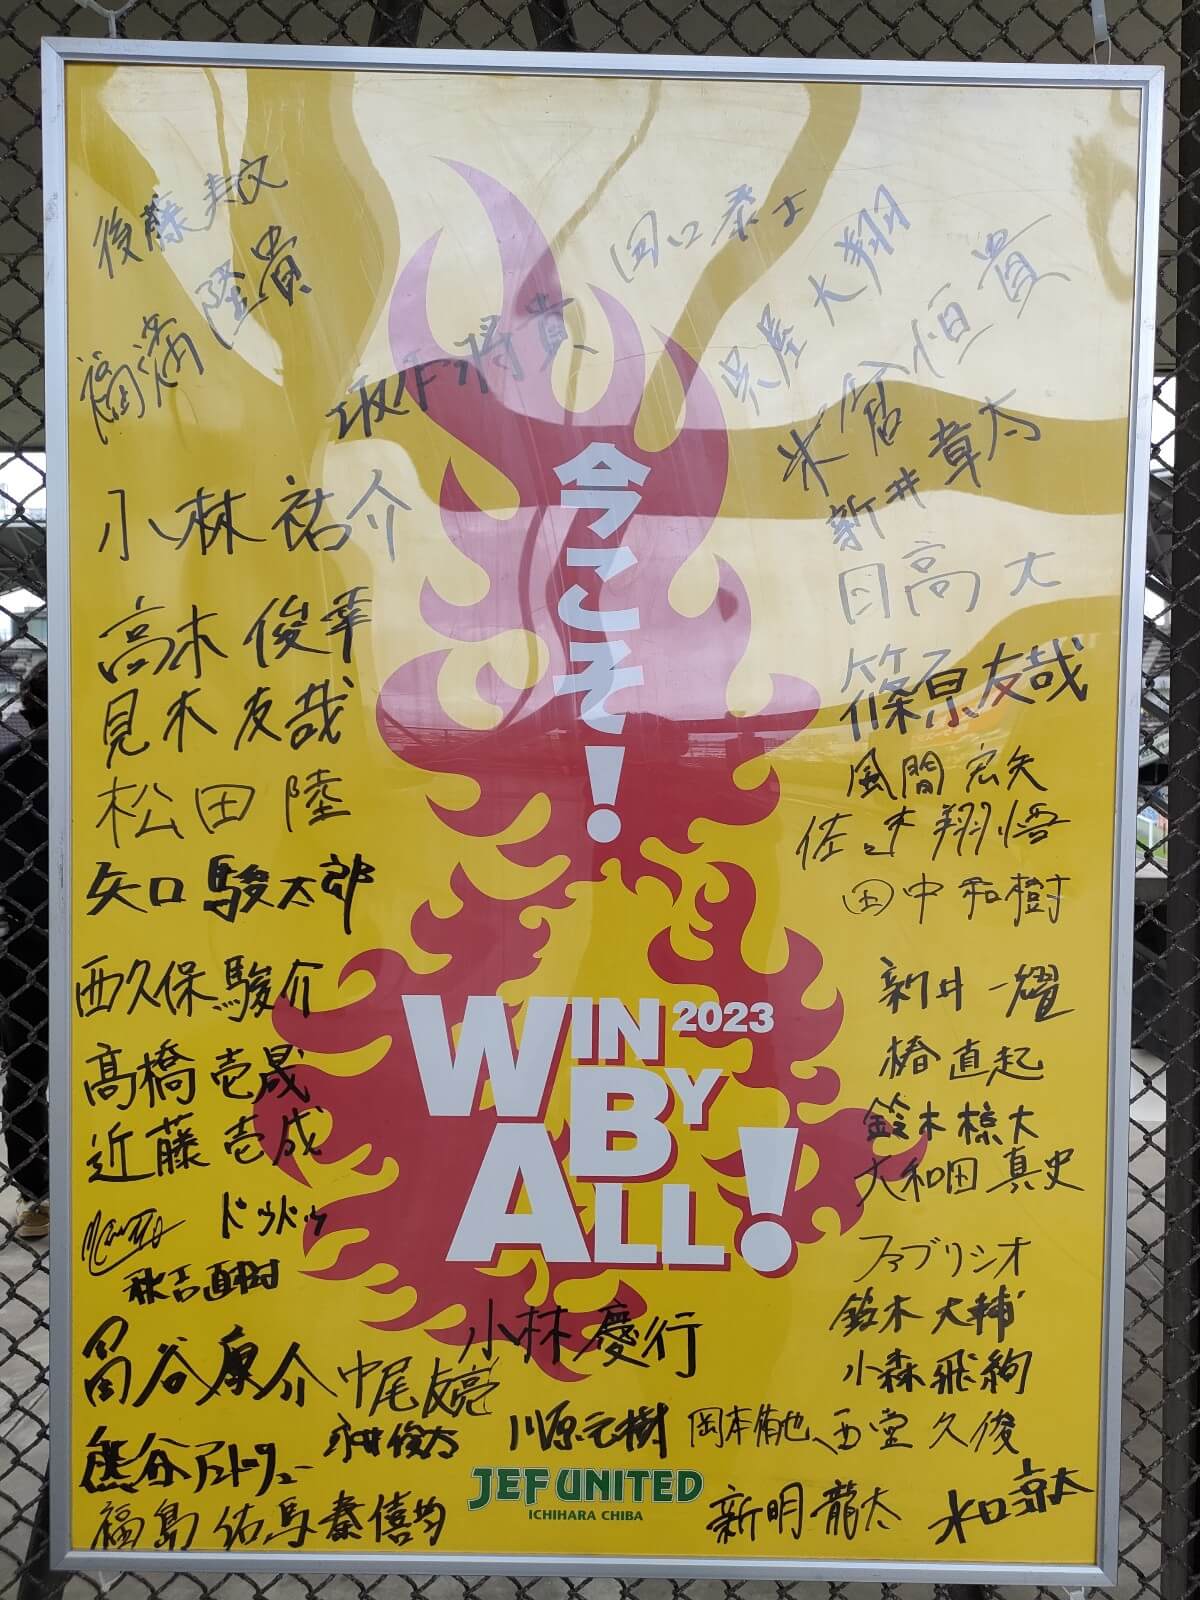 後藤
福満隆貴
坂本将貴
田口泰士
呉屋大翔
米倉恒貴
新井章太
日高大
今こそ!
小林祐介
高木俊幸
見木友哉
松田陸
矢口駿太郎
西久保駿介
高橋壱晟
近藤壱成
ドゥドゥ
秋吉直樹
篠原友哉
風間宏矢
佐々木翔悟
田中和樹
新井一耀
椿直起
鈴木椋大
大和田真史
ファブリシオ
鈴木大輔
小森飛絢
WIN 2023
BY
ALL!
小林慶行
中尾友亮
熊谷アンドリュー
永井俊太
川原元樹
岡本侑也
西堂久俊
福島佑馬
秦僖均
JEF UNITED
ICHIHARA CHIBA
新明龍太
水口京太